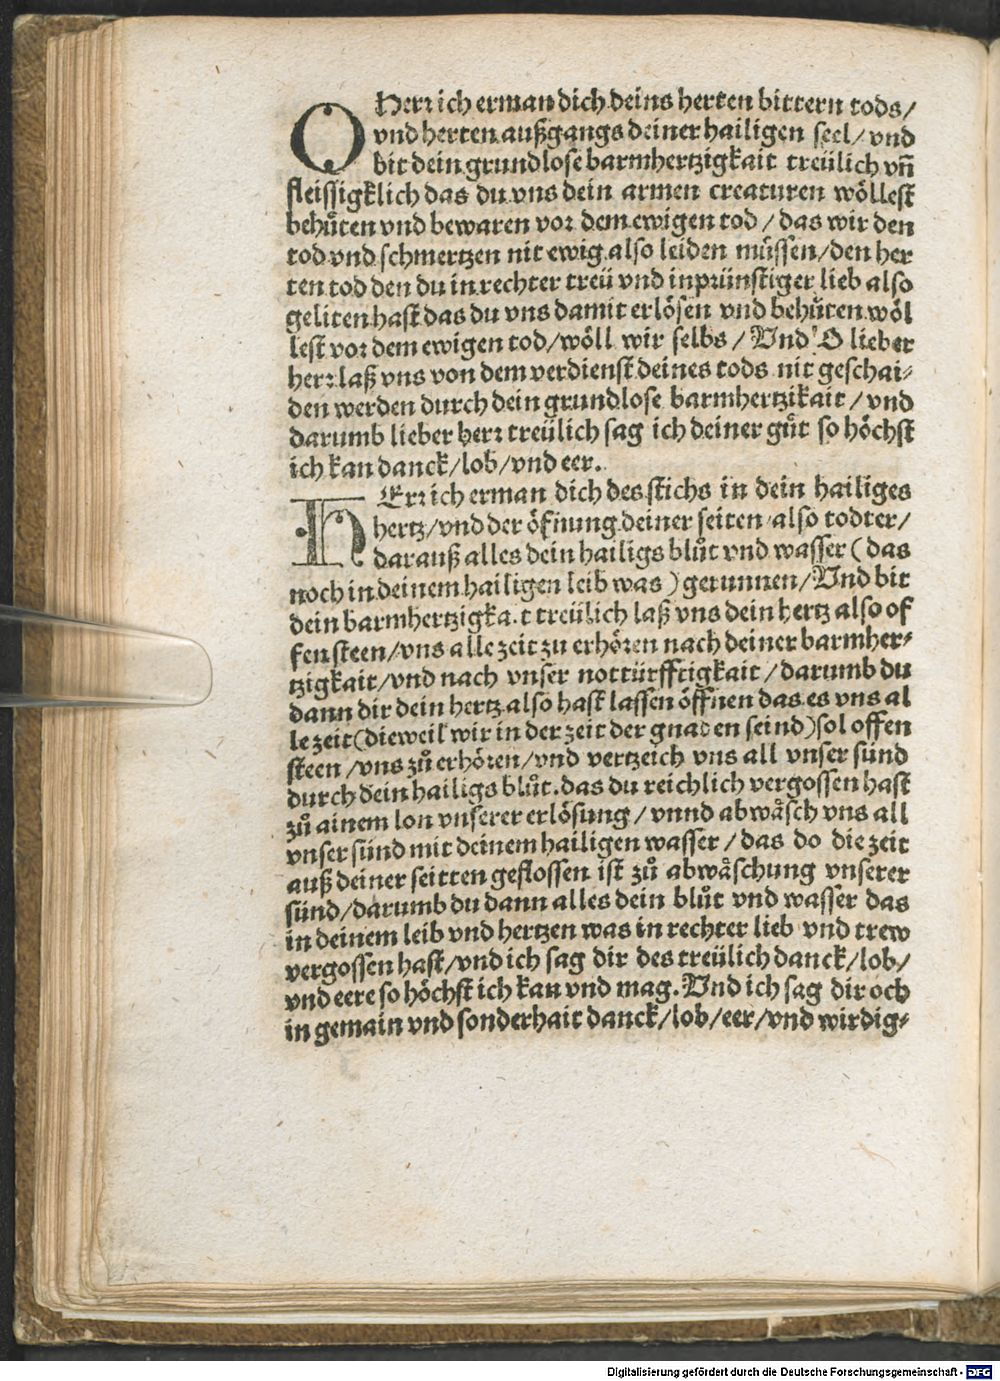 O Herr ich erman dich deins herten bittern tods/
vnd herten außgangs deiner hailigen seel/vnd
bit dein grundlose barmhertzigkait treülich vn̄
fleissigklich das du vns dein armen creaturen wöllest
behuͤten vnd bewaren vor dem ewigen tod/das wir den
tod vnd schmertzen nit ewig also leiden muͤssen/den her
ten tod den du in rechter treü vnd inprünstiger lieb also
geliten hast das du vns damit erlösen vnd behuͤten wöl
lest vor dem ewigen tod/wöll wir selbs/Vnd O lieber
herr laß vns von dem verdienst deines tods nit geschai-
den werden durch dein grundlose barmhertzikait/vnd
darumb lieber herr treülich sag ich deiner guͤt so höchst
ich kan danck/lob/vnd eer.
HErr ich erman dich des stichs in dein hailiges
hertz/vnd der öfnung deiner seiten also todter/
darauß alles dein hailigs bluͦt vnd wasser (das
noch in deinem hailigen leib was) gerunnen/Vnd bit
dein barmhertzigka.t treülich laß vns dein hertz also of
fen steen/vns alle zeit zu erhören nach deiner barmher-
tzigkait/vnd nach vnser notturfftigkait/darumb du
dann dir dein hertz also hast lassen öffnen das es vns al
le zeit (dieweil wir in der zeit der gnaden seind) sol offen
steen/vns zuͦ erhören/vnd vertzeich vns all vnser sünd
durch dein hailigs bluͦt.das du reichlich vergossen hast
zuͦ ainem lon vnserer erlösung/vnnd abwäsch vns all
vnser sünd mit deinem hailigen wasser/das do die zeit
auß deiner seitten geflossen ist zuͦ abwäschung vnserer
sünd/darumb du dann alles dein bluͦt vnd wasser das
in deinem leib vnd hertzen was in rechter lieb vnd trew
vergossen hast/vnd ich sag dir des treülich danck/lob/
vnd eere so höchst ich kan vnd mag.Vnd ich sag dir och
in gemain vnd sonderhait danck/lob/eer/vnd wirdig-
Digitalisierung gefördert durch die Deutsche Forschungsgemeinschaft - DFG